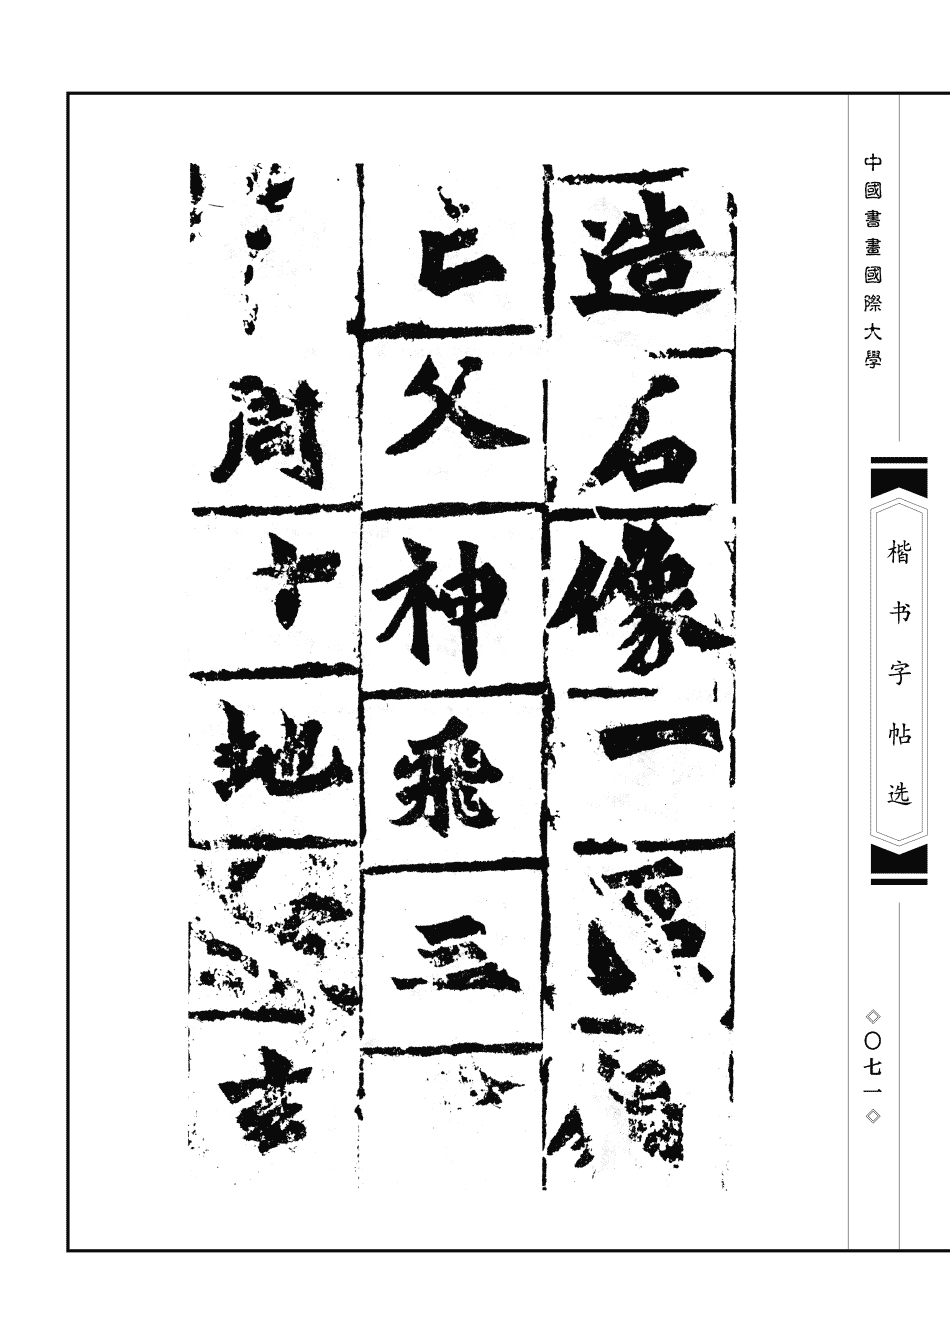 中國書畫國際大學
楷书字帖选
〇七一
造石像一
亡父神飛三
周十地玄